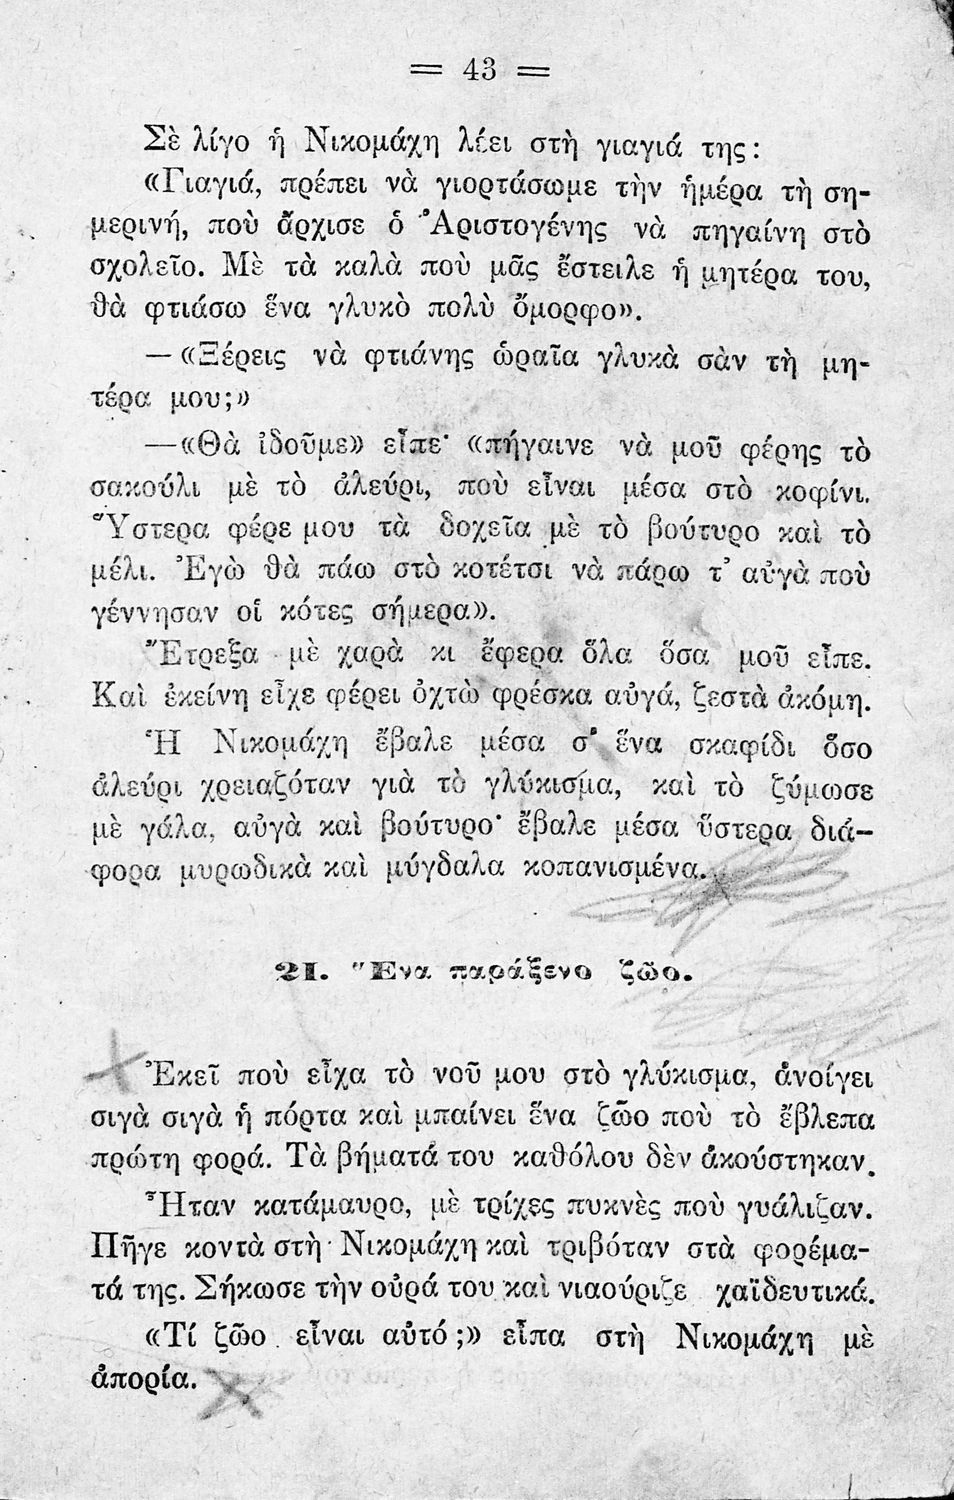 = 43 =
Σὲ λίγο ἡ Νικομάχη λέει στὴ γιαγιά της:
«Γιαγιά, πρέπει νὰ γιορτάσωμε τὴν ἡμέρα τὴ ση-
μερινή, ποὺ ἄρχισε ὁ Ἀριστογένης νὰ πηγαίνη στὸ
σχολεῖο. Μὲ τὰ καλὰ ποὺ μᾶς ἔστειλε ἡ μητέρα του,
θὰ φτιάσω ἕνα γλυκὸ πολὺ ὄμορφο».
— «Ξέρεις νὰ φτιάνης ὡραῖα γλυκὰ σὰν τὴ μη-
τέρα μου;»
—«Θὰ ἰδοῦμε» εἶπε· «πήγαινε νὰ μοῦ φέρης τὸ
σακούλι μὲ τὸ ἀλεύρι, ποὺ εἶναι μέσα στὸ κοφίνι.
Ὕστερα φέρε μου τὰ δοχεῖα μὲ τὸ βούτυρο καὶ τὸ
μέλι. Ἐγὼ θὰ πάω στὸ κοτέτσι νὰ πάρω τ' αὐγὰ ποὺ
γέννησαν οἱ κότες σήμερα».
Ἔτρεξα μὲ χαρὰ κι ἔφερα ὅλα ὅσα μοῦ εἶπε.
Καὶ ἐκείνη εἶχε φέρει ὀχτὼ φρέσκα αὐγά, ζεστὰ ἀκόμη.
Ἡ Νικομάχη ἔβαλε μέσα σ' ἕνα σκαφίδι ὅσο
ἀλεύρι χρειαζόταν γιὰ τὸ γλύκισμα, καὶ τὸ ζύμωσε
μὲ γάλα, αὐγὰ καὶ βούτυρο· ἔβαλε μέσα ὕστερα διά-
φορα μυρωδικὰ καὶ μύγδαλα κοπανισμένα.
21. Ἕνα παράξενο ζῶο.
Ἐκεῖ ποὺ εἶχα τὸ νοῦ μου στὸ γλύκισμα, ἀνοίγει
σιγὰ σιγὰ ἡ πόρτα καὶ μπαίνει ἕνα ζῶο ποὺ τὸ ἔβλεπα
πρώτη φορά. Τὰ βήματά του καθόλου δὲν ἀκούστηκαν.
Ἦταν κατάμαυρο, μὲ τρίχες πυκνὲς ποὺ γυάλιζαν.
Πῆγε κοντὰ στὴ Νικομάχη καὶ τριβόταν στὰ φορέμα-
τά της. Σήκωσε τὴν οὐρά του καὶ νιαούριζε χαϊδευτικά.
«Τί ζῶο εἶναι αὐτό;» εἶπα στὴ Νικομάχη μὲ
ἀπορία.